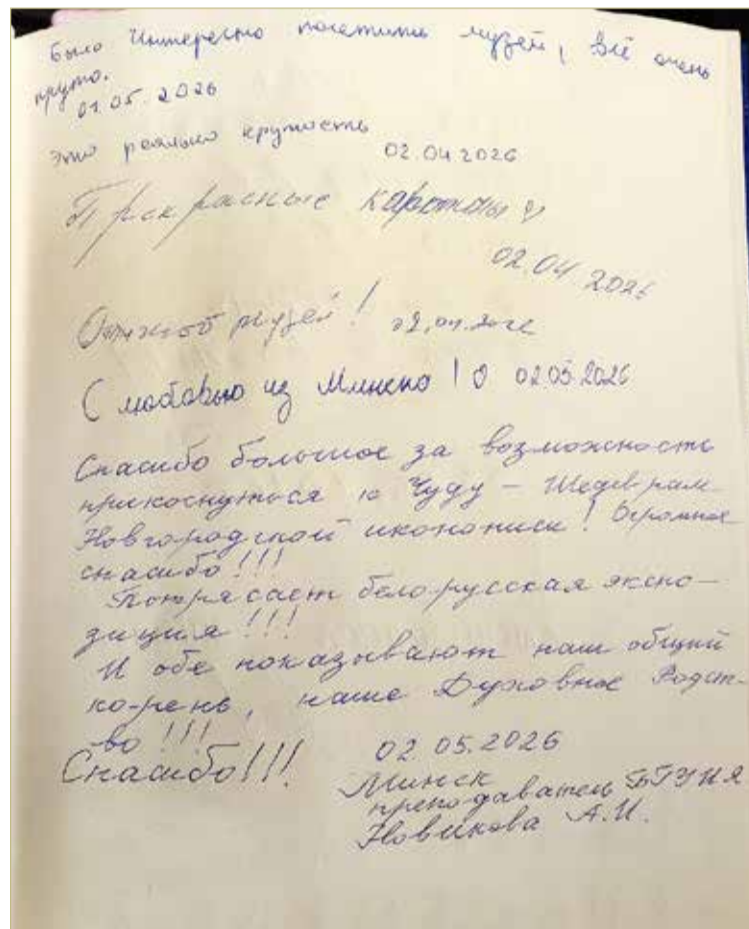 Было Интересно посетить музей, всё очень
круто.
01.05.2026
Это реально крутость
02.04.2026
Прекрасные картины
02.04.2026
музей!
С любовью из Минска! 02.05.2026
Спасибо большое за возможность
прикоснуться к Чуду – Шедеврам
Новгородской иконописи! Огромное
спасибо!!!
Потрясает белорусская экспо-
зиция!!!
И обе показывают наш общий
ко-рень, наше Духовное Родст-
во!!!
Спасибо!!!
02.05.2026
Минск
преподаватель БГУИЯ
Новикова А.И.